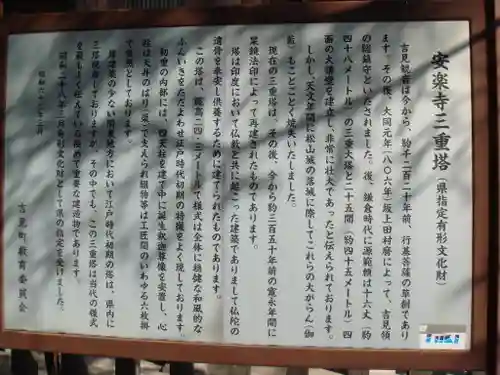 安楽寺三重塔(県指定有形文化財)
吉見観音は今から、約千二百二十年前、行基菩薩の草創であり
ます。その後、大同元年(八〇六年)坂上田村麿によって、吉見領
の総鎮守といたされました。後、鎌倉時代に源範頼は十六丈(約
四十八メートル)の三重大塔と二十五間(約四十五メートル)四
面の大講堂を建立し、非常に壮大であったと伝えられております。
しかし、天文年間に松山城の落城に際してこれらの大がらん(伽
藍)もことごとく焼失いたしました。
現在の三重塔は、その後、今から約三百五十年前の寛永年間に
杲鏡法印によって再建されたものであります。
塔は印度において仏教と共に起こった建築でありまして仏陀の
遺骨を奉安し供養するために建てられたものであります。
この塔は、総高二四・三メートルで様式は全体に穏健な和風的な
ふんいきをただよわせ江戸時代初期の特徴をよく現しております。
初重の内部は、四天柱を建て中に誕生釈迦尊像を安置し、心
柱は天井のはり(梁)で支えられ組物等は工匠間のいわゆる六枝掛
で整然としております。
塔建築の少ない関東地方において江戸時代初期の塔は、県内に
三塔現存しておりますが、その中でも、この三重塔は当代の様式
を最もよく伝えている極めて重要な建造物であります。
昭和二十八年三月有形文化財として県の指定を受けました。
昭和六十三年三月
吉見町教育委員会